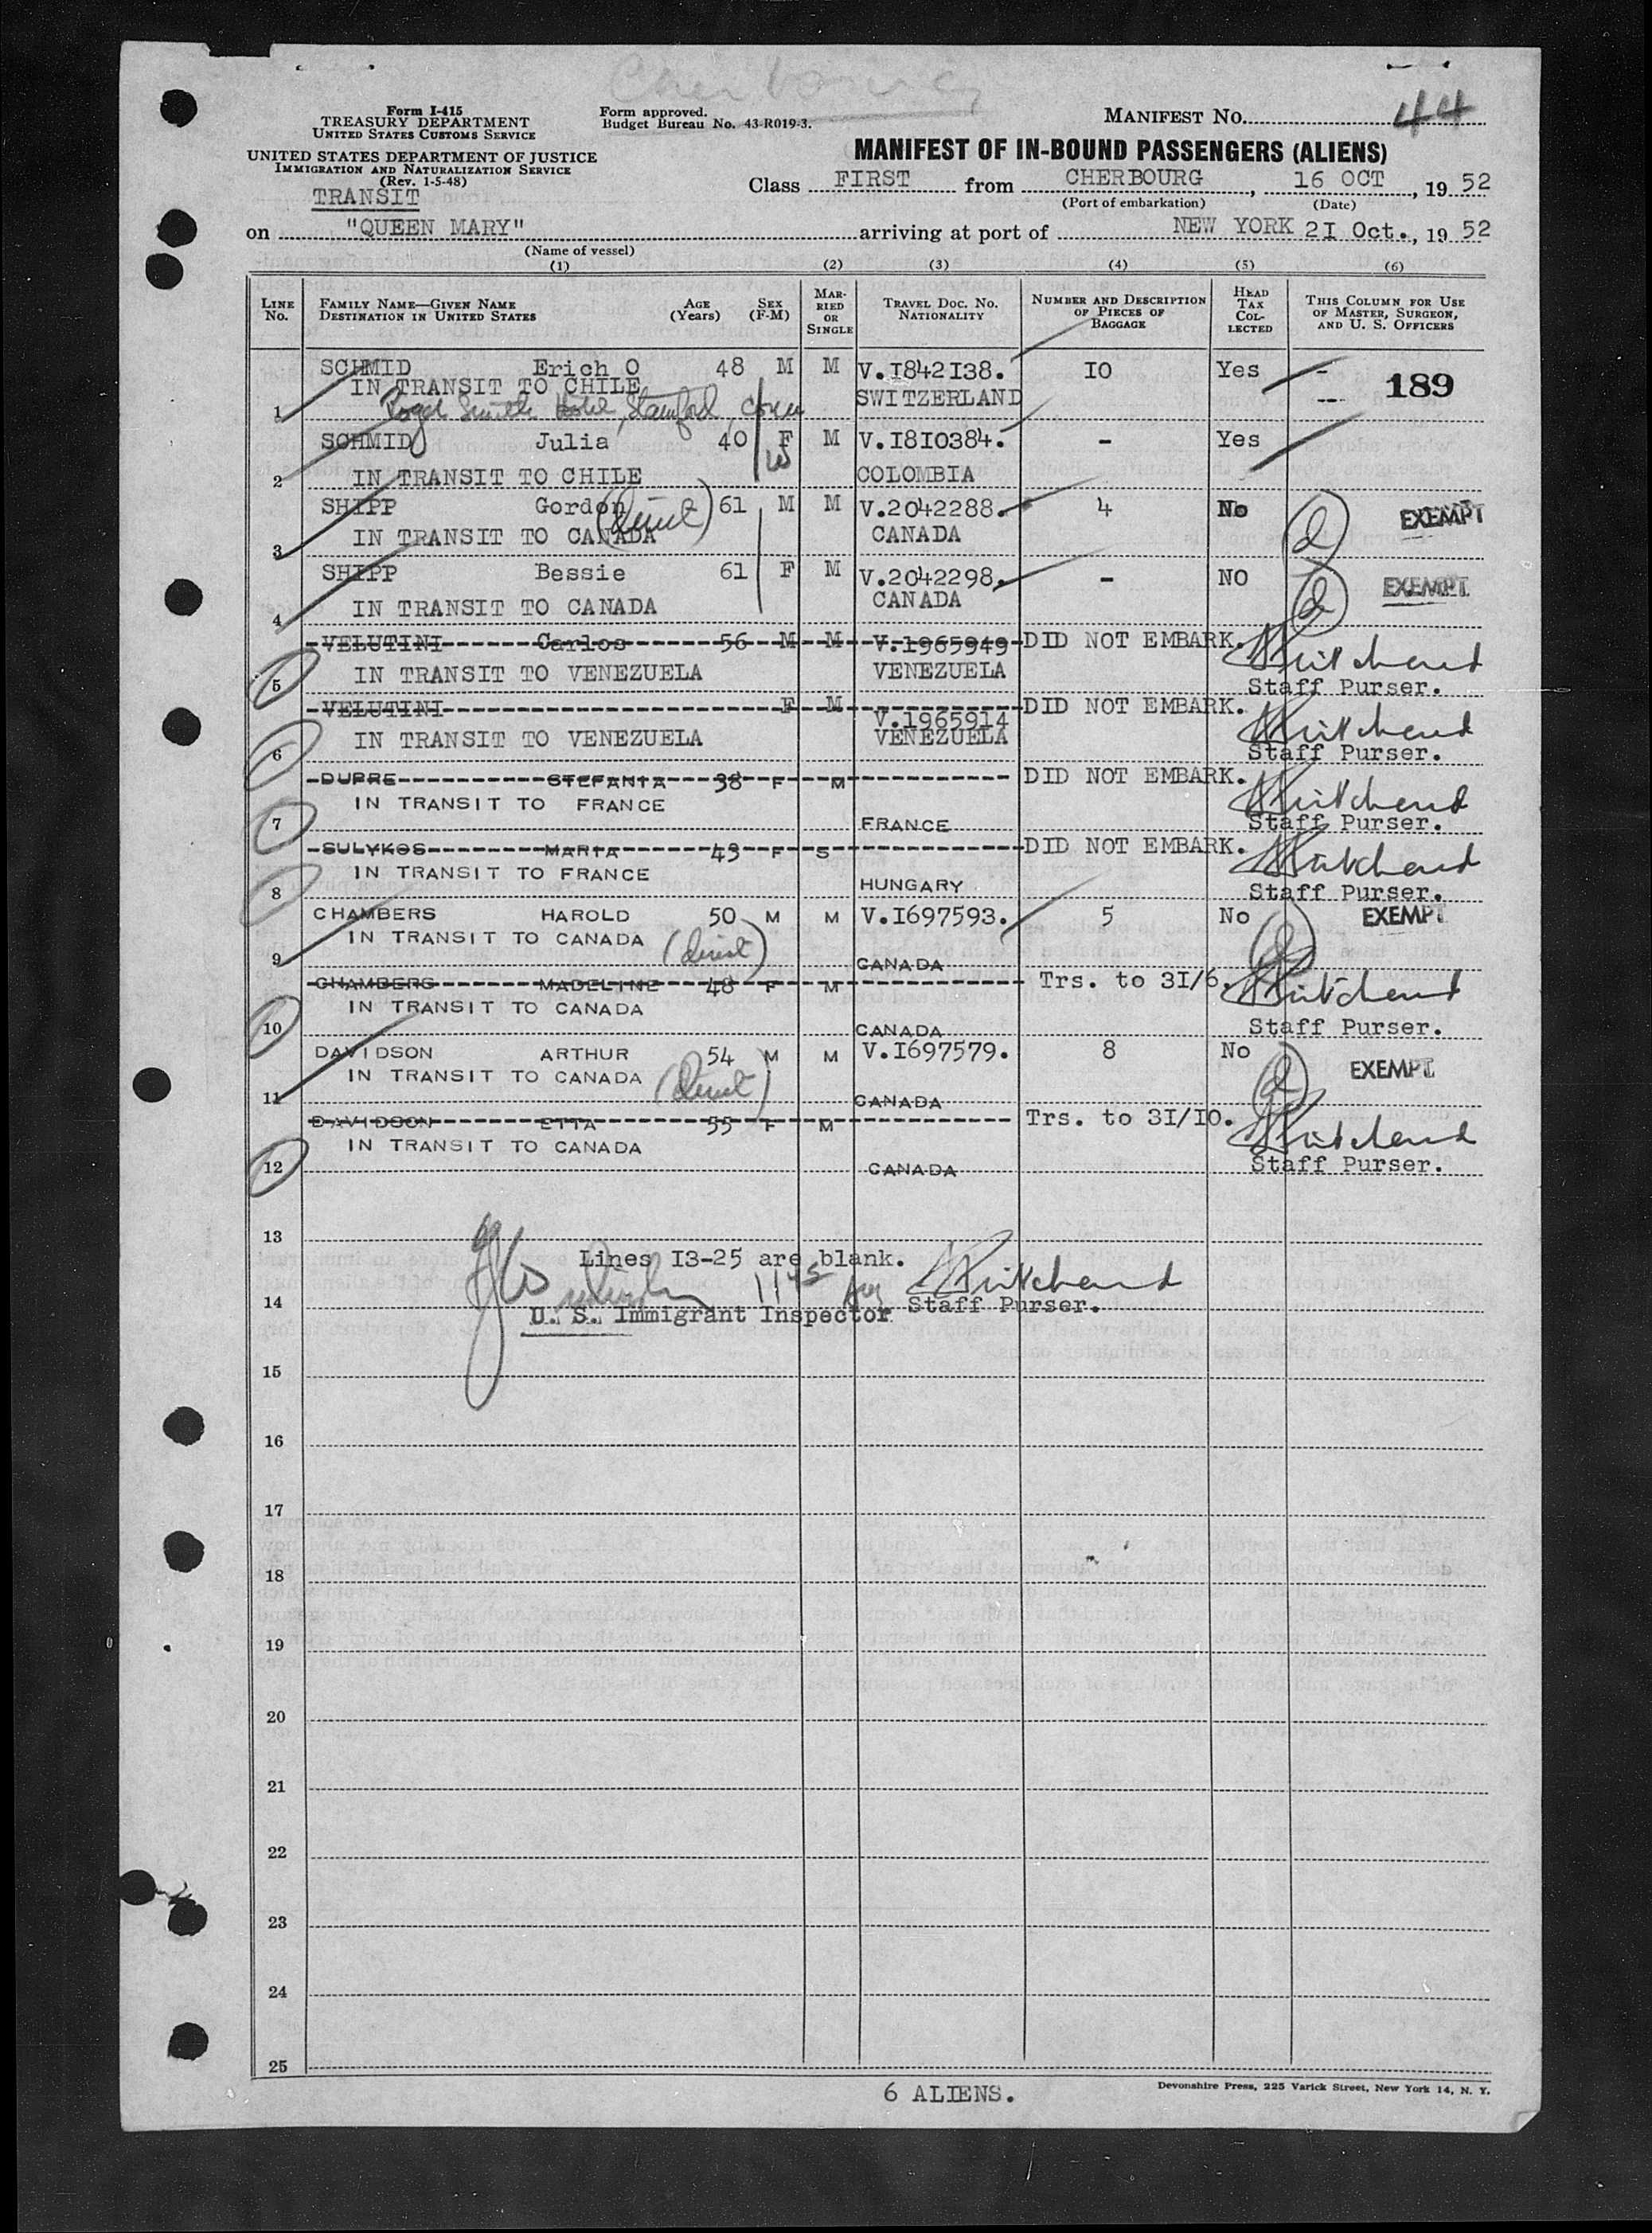 Cherbourg
Form I-415
TREASURY DEPARTMENT
UNITED STATES CUSTOMS SERVICE
Form approved.
Budget Bureau No. 43-R019-3.
MANIFEST NO. 44
UNITED STATES DEPARTMENT OF JUSTICE
IMMIGRATION AND NATURALIZATION SERVICE
(Rev. 1-5-48)
TRANSIT
MANIFEST OF IN-BOUND PASSENGERS (ALIENS)
Class FIRST from CHERBOURG, 16 OCT, 19 52
(Port of embarkation) (Date)
on "QUEEN MARY" arriving at port of NEW YORK 2I Oct., 19 52
(Name of vessel)
(1) (2) (3) (4) (5) (6)
LINE No. FAMILY NAME—GIVEN NAME DESTINATION IN UNITED STATES AGE (Years) SEX (F-M) MARRIED OR SINGLE TRAVEL DOC. NO. NATIONALITY NUMBER AND DESCRIPTION OF PIECES OF BAGGAGE HEAD TAX COLLECTED THIS COLUMN FOR USE OF MASTER, SURGEON, AND U. S. OFFICERS
SCHMID Erich O 48 M M V.I842I38. IO Yes - 189
IN TRANSIT TO CHILE SWITZERLAND ---
1 Roger Smith Hotel, Stamford, Conn
SCHMID Julia 40 F M V.I8I0384. - Yes
W
2 IN TRANSIT TO CHILE COLOMBIA
SHIPP Gordon (Direct) 61 M M V.2042288. 4 No (d) EXEMPT
3 IN TRANSIT TO CANADA CANADA
SHIPP Bessie 61 F M V.2042298. - NO (d) EXEMPT
4 IN TRANSIT TO CANADA CANADA
VELUTINI Carlos 56 M M V.1965949 DID NOT EMBARK. Pritchard
5 IN TRANSIT TO VENEZUELA VENEZUELA Staff Purser.
VELUTINI F M V.1965914 DID NOT EMBARK. Pritchard
6 IN TRANSIT TO VENEZUELA VENEZUELA Staff Purser.
DUPRE STEFANIA 38 F M DID NOT EMBARK. Pritchard
IN TRANSIT TO FRANCE
7 FRANCE Staff Purser.
SULYKOS MARIA 43 F S DID NOT EMBARK. Pritchard
IN TRANSIT TO FRANCE
8 HUNGARY Staff Purser.
CHAMBERS HAROLD 50 M M V.I697593. 5 No (d) EXEMPT
IN TRANSIT TO CANADA (Direct)
9 CANADA
CHAMBERS MADELINE 48 F M Trs. to 3I/6. Pritchard
IN TRANSIT TO CANADA
10 CANADA Staff Purser.
DAVIDSON ARTHUR 54 M M V.I697579. 8 No (d) EXEMPT
IN TRANSIT TO CANADA (Direct)
11 CANADA
DAVIDSON ETTA 55 F M Trs. to 3I/IO. Pritchard
IN TRANSIT TO CANADA
12 CANADA Staff Purser.
13
Lines I3-25 are blank. Pritchard
14 Staff Purser.
U. S. Immigrant Inspector
15
16
17
18
19
20
21
22
23
24
25
6 ALIENS.
Devonshire Press, 225 Varick Street, New York 14, N. Y.